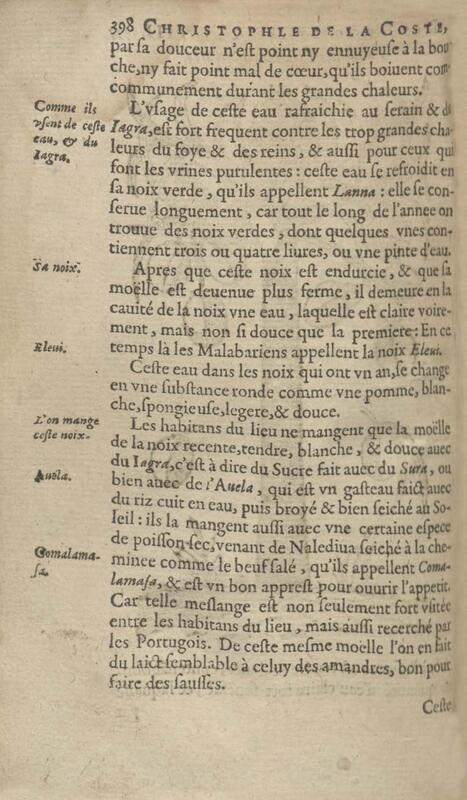 398 CHRISTOPHLE DE LA COSTE,
par sa douceur n'est point ny ennuyeuse à la bou
che, ny fait point mal de cœur, qu'ils boiuent com
communement durant les grandes chaleurs.
Comme ils
vsent de ceste
eau, & du
Iagra.
L'vsage de ceste eau rafraichie au serain & du
Iagra, est fort frequent contre les trop grandes cha
leurs du foye & des reins, & aussi pour ceux qui
font les vrines putulentes : ceste eau se refroidit en
sa noix verde, qu'ils appellent Lanna : elle se con-
serue longuement, car tout le long de l'annee on
trouue des noix verdes, dont quelques vnes con-
tiennent trois ou quatre liures, ou vne pinte d'eau.
Sa noix.
Apres que ceste noix est endurcie, & que sa
moëlle est deuenue plus ferme, il demeure en la
cauité de la noix vne eau, laquelle est claire voire-
ment, mais non si douce que la premiere : En ce
Eleui.
temps là les Malabariens appellent la noix Eleui.
Ceste eau dans les noix qui ont vn an, se change
en vne substance ronde comme vne pomme, blan-
che, spongieuse, legere, & douce.
L'on mange
ceste noix.
Les habitans du lieu ne mangent que la moëlle
de la noix recente, tendre, blanche, & douce auec
du Iagra, c'est à dire du Sucre fait auec du Sura, ou
Auela.
bien auec de l'Auela, qui est vn gasteau faict auec
du riz cuit en eau, puis broyé & bien seiché au So-
leil : ils la mangent aussi auec vne certaine espece
de poisson sec, venant de Nalediua seiché à la che-
Comalama-
sa.
minee comme le beuf salé, qu'ils appellent Coma-
lamasa, & est vn bon apprest pour ouurir l'appetit.
Car telle meslange est non seulement fort vsitée
entre les habitans du lieu, mais aussi recerché par
les Portugois. De ceste mesme moëlle l'on en fait
du laict semblable à celuy des amandres, bon pour
faire des sausses.
Ceste